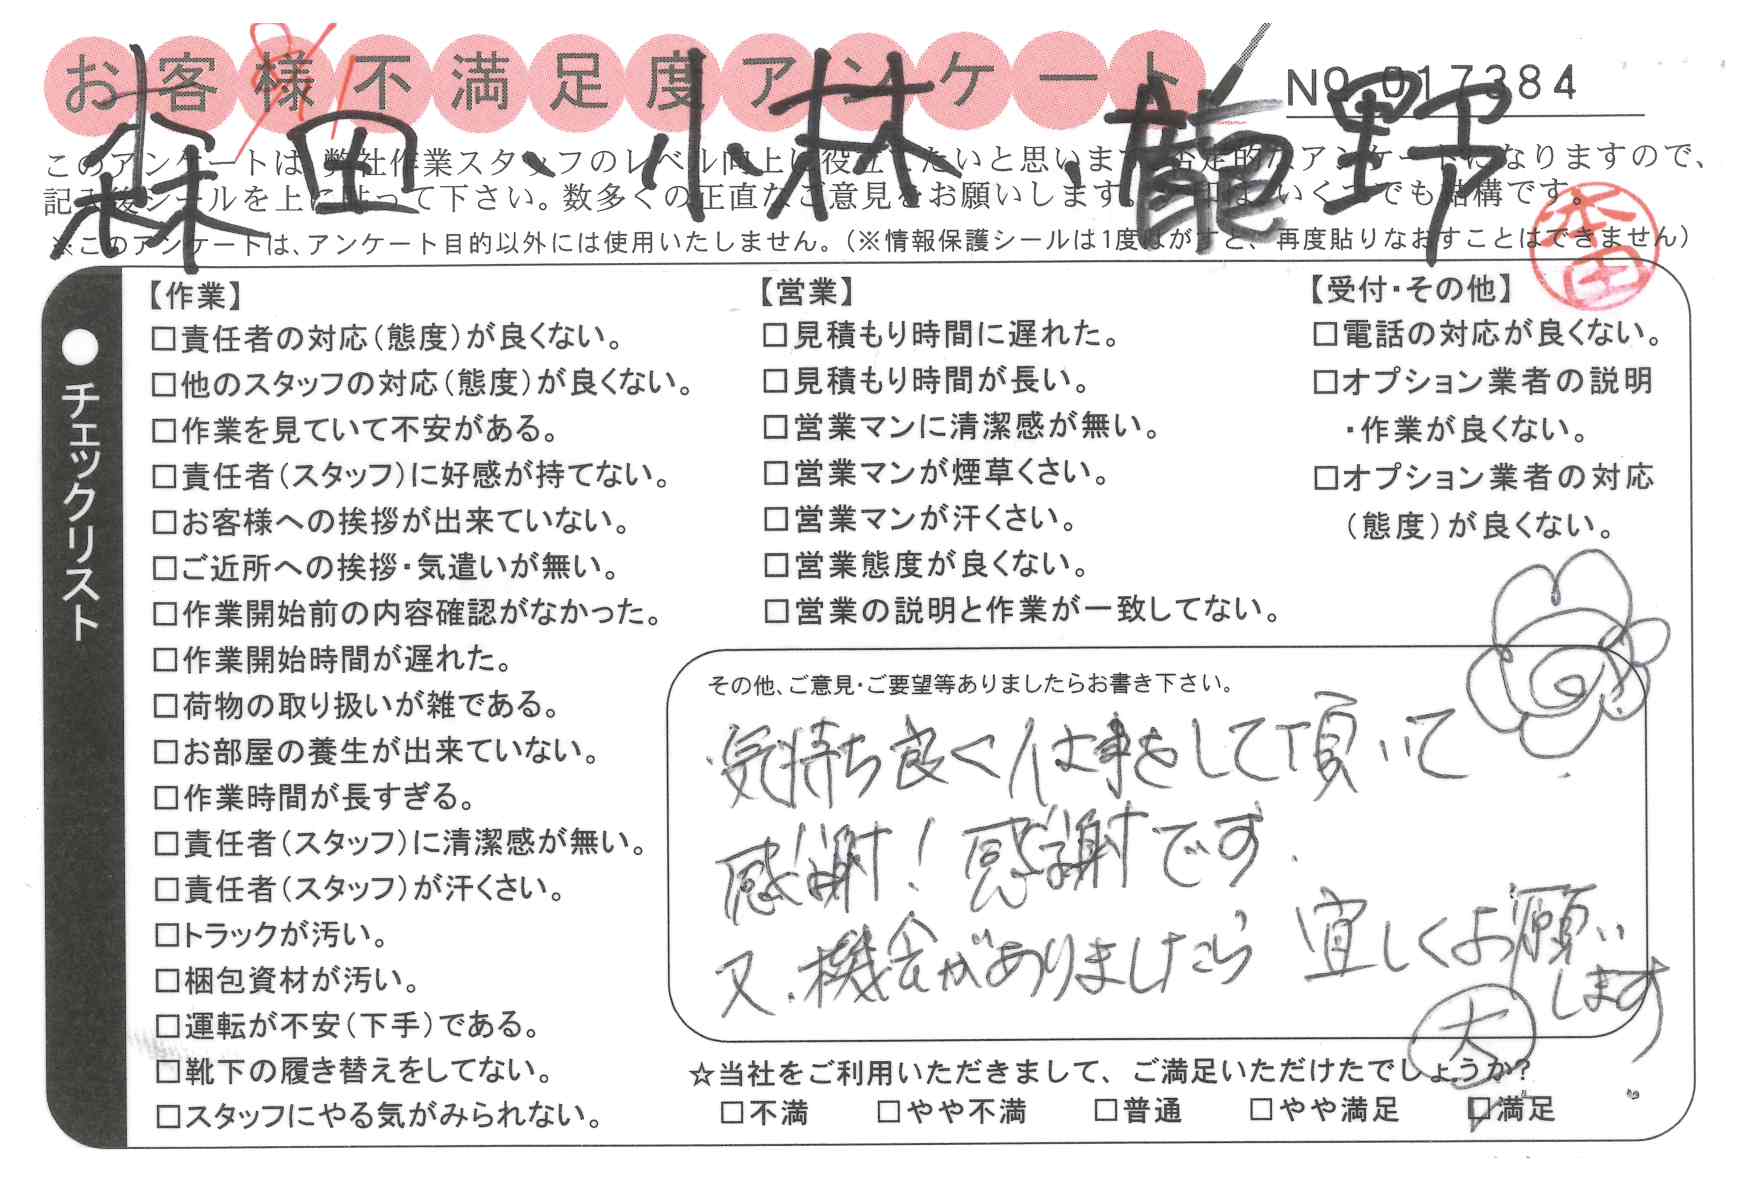 お客様不満足度アンケート
NO 017384
森田、小林、龍野
このアンケートは、弊社作業スタッフのレベル向上に役立てたいと思います。否定的なアンケートになりますので、
記入後シールを上に貼って下さい。数多くの正直なご意見をお願いします。レ印は、いくつでも結構です。
※このアンケートは、アンケート目的以外には使用いたしません。(※情報保護シールは1度はがすと、再度貼りなおすことはできません)
本田
●チェックリスト
【作業】
□責任者の対応(態度)が良くない。
□他のスタッフの対応(態度)が良くない。
□作業を見ていて不安がある。
□責任者(スタッフ)に好感が持てない。
□お客様への挨拶が出来ていない。
□ご近所への挨拶・気遣いが無い。
□作業開始前の内容確認がなかった。
□作業開始時間が遅れた。
□荷物の取り扱いが雑である。
□お部屋の養生が出来ていない。
□作業時間が長すぎる。
□責任者(スタッフ)に清潔感が無い。
□責任者(スタッフ)が汗くさい。
□トラックが汚い。
□梱包資材が汚い。
□運転が不安(下手)である。
□靴下の履き替えをしてない。
□スタッフにやる気がみられない。
【営業】
□見積もり時間に遅れた。
□見積もり時間が長い。
□営業マンに清潔感が無い。
□営業マンが煙草くさい。
□営業マンが汗くさい。
□営業態度が良くない。
□営業の説明と作業が一致してない。
【受付・その他】
□電話の対応が良くない。
□オプション業者の説明
・作業が良くない。
□オプション業者の対応
(態度)が良くない。
その他、ご意見・ご要望等ありましたらお書き下さい。
気持ち良く仕事をして頂いて
感謝!感謝です.
又、機会がありましたら 宜しくお願い
します
☆当社をご利用いただきまして、ご満足いただけたでしょうか?
大
□不満 □やや不満 □普通 □やや満足 □満足